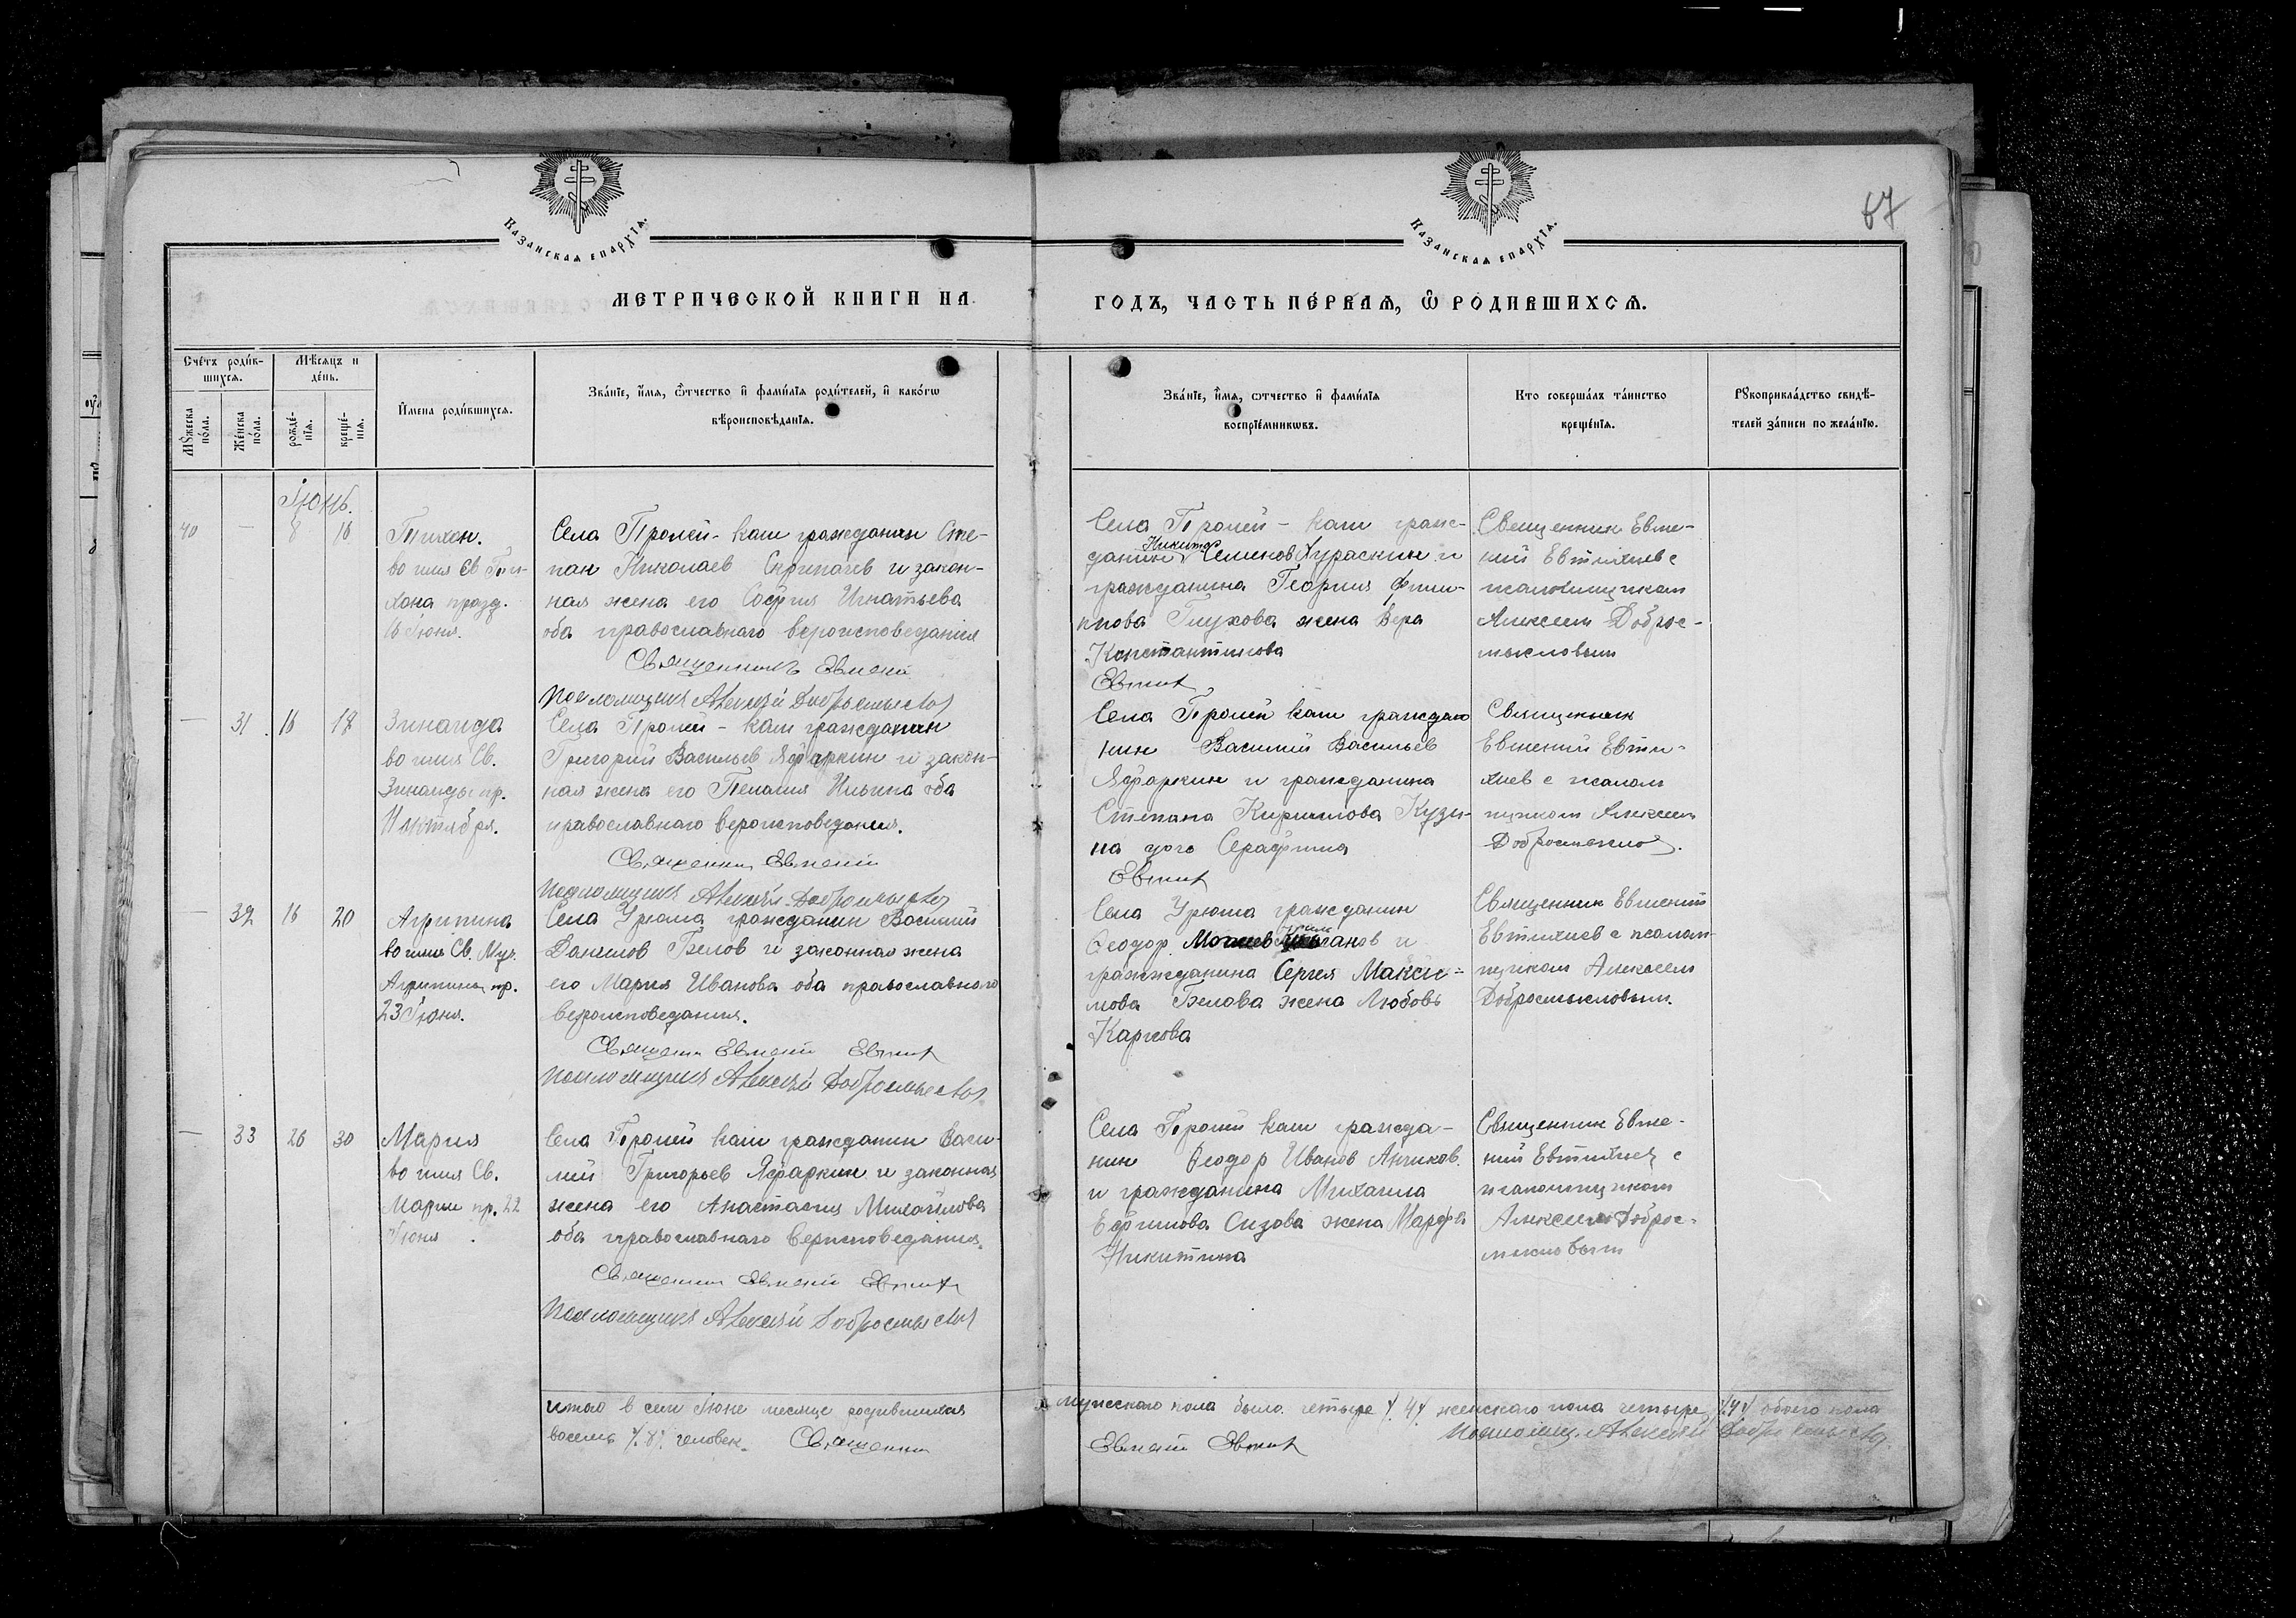 67
КАЗАНСКАѦ ЕПАРХЇѦ.
КАЗАНСКАѦ ЕПАРХЇѦ.
МЕТРИЧЕСКОЙ КНИГИ НА
ГОДЪ, ЧАСТЬ ПЕРВАѦ, Ѽ РОДИВШИХСѦ.
Счетъ родив-
шихсѧ.
Мѣсѧцъ и
день.
Мꙋжеска
пола.
Женска
пола.
рожде-
нїѧ.
креще-
нїѧ.
Имена родившихсѧ.
Званїе, имѧ, ѿчество и фамилїѧ родителей, и какогѡ
вѣроисповѣданїѧ.
Званїе, имѧ, ѿчество и фамилїѧ
воспрїемникѡвъ.
Кто совершалъ таинство
крещенїѧ.
Рꙋкоприкладство свидѣ-
телей записи по желанїю.
Іюнь.
40 — 8 16
Тихон.
во имя Св. Ти-
хона празд.
16 Іюня.
Села Пролей-каши гражданин Сте-
пан Николаев Скрипачев и закон-
ная жена его София Игнатьева
оба православнаго вероисповедания
Священникъ Евмений
Псаломщик Алексей Добросмыслов
Села Пролей-каши граж-
данин Никитор Семенов Аураскин и
гражданина Георгия Фили-
пова Глухова жена Вера
Константинова
Евтих
Священник Евме-
ний Евтихиев с
псаломщиком
Алексеем Доброс-
мысловым
— 31 16 18
Зинаида
во имя Св.
Зинаиды пр.
11 октября.
Села Пролей-каши гражданин
Григорий Васильев Яфаркин и закон-
ная жена его Пелагия Ильина оба
православнаго вероисповедания.
Священник Евмений
Псаломщик Алексей Добросмыслов
Села Пролей каши гражда
нин Василий Васильев
Яфаркин и гражданина
Степана Кирилова Кузи-
на дочь Серафима
Евтих
Священник
Евмений Евти-
хиев с псалом
щиком Алексеем
Добросмыслов.
— 32 16 20
Агрипина
во имя Св. Муч.
Агрипины пр.
23 Іюня.
Села Урюма гражданин Василий
Данилов Белов и законная жена
его Мария Иванова оба православного
вероисповедания.
Священник Евмений Евтих
Псаломщик Алексей Добросмыслов
Села Урюма гражданин
Феодор
и
гражданина Сергея Макси-
мова Белова жена Любовь
Карпова
Священник Евмений
Евтихиев с псалом-
щиком Алексеем
Добросмысловым.
— 33 26 30
Мария
во имя Св.
Марии пр. 22
Іюня.
Села Пролей каши гражданин Васи-
лий Григорьев Яфаркин и законная
жена его Анастасия Михайлова
оба православнаго вероисповедания.
Священник Евмений Евтих
Псаломщик Алексей Добросмыслов
Села Пролей каши гражда-
нин Феодор Иванов Анчиков
и гражданина Михаила
Ефимова Сизова жена Марфа
Никитина
Священник Евме-
ний Евтихиев с
псаломщиком
Алексеем Доброс-
мысловым
итого в сем Июне месяце родившихся мужескаго пола было четыре /.4/ женскаго пола четыре /.4/ обоего пола
восемь /.8/. человек. Священник Евмений Евтих Псаломщ. Алексей Добросмыслов